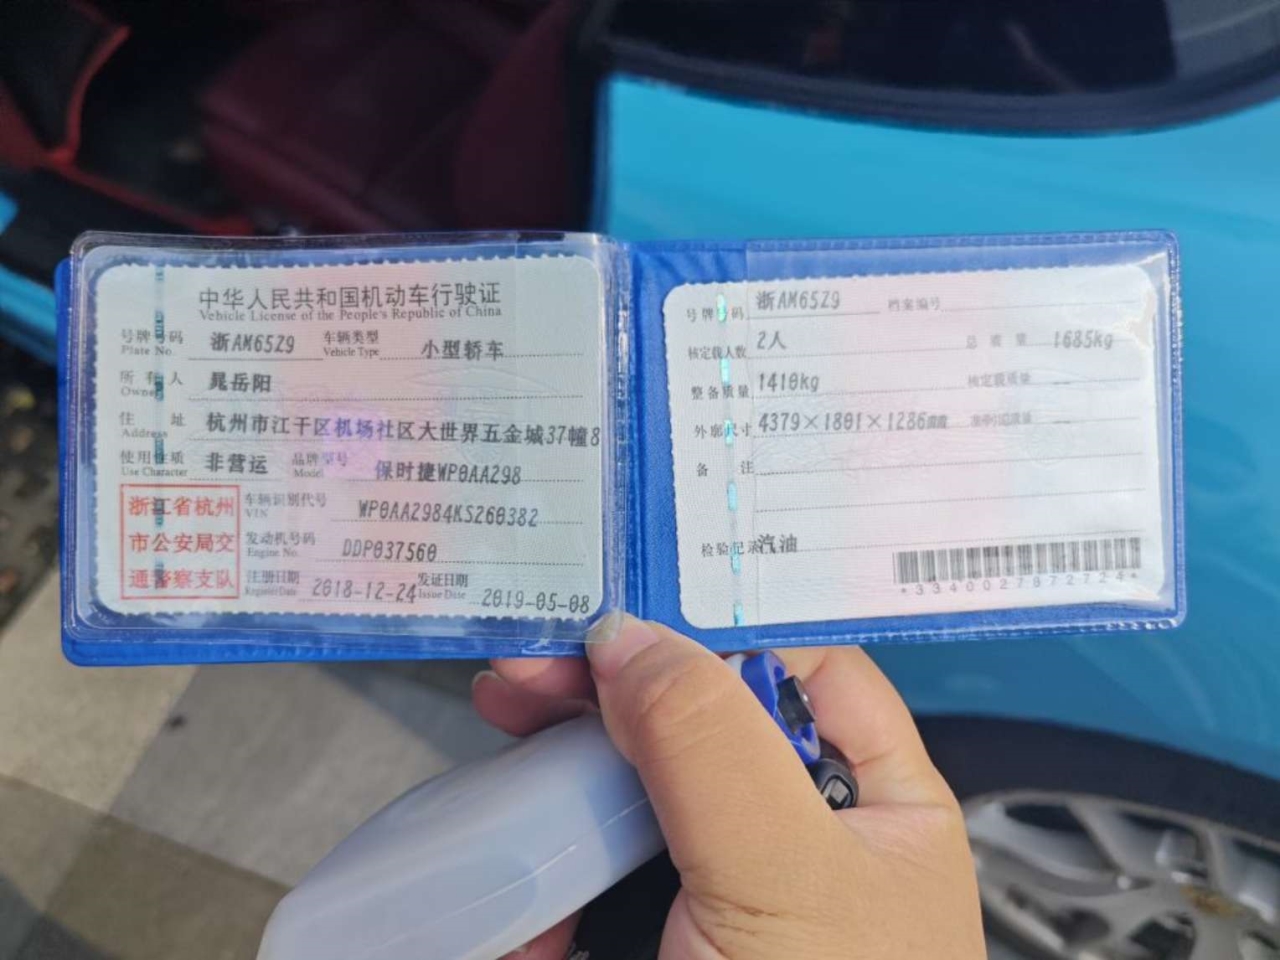 中华人民共和国机动车行驶证
Vehicle License of the People's Republic of China
号牌号码 浙AM65Z9 车辆类型 小型轿车
Plate No. Vehicle Type
所有人 晁岳阳
Owner
住址 杭州市江干区机场社区大世界五金城37幢8
Address
使用性质 非营运 品牌型号 保时捷WP0AA298
Use Character Model
浙江省杭州
市公安局交
通警察支队
车辆识别代号 WP0AA2984KS260382
VIN
发动机号码 DDP037560
Engine No.
注册日期 2018-12-24 发证日期 2019-05-08
Register Date Issue Date
号牌号码 浙AM65Z9 档案编号
核定载人数 2人 总质量 1685kg
整备质量 1410kg 核定载质量
外廓尺寸 4379×1801×1286
备注
检验记录 汽油
*3340027872724*